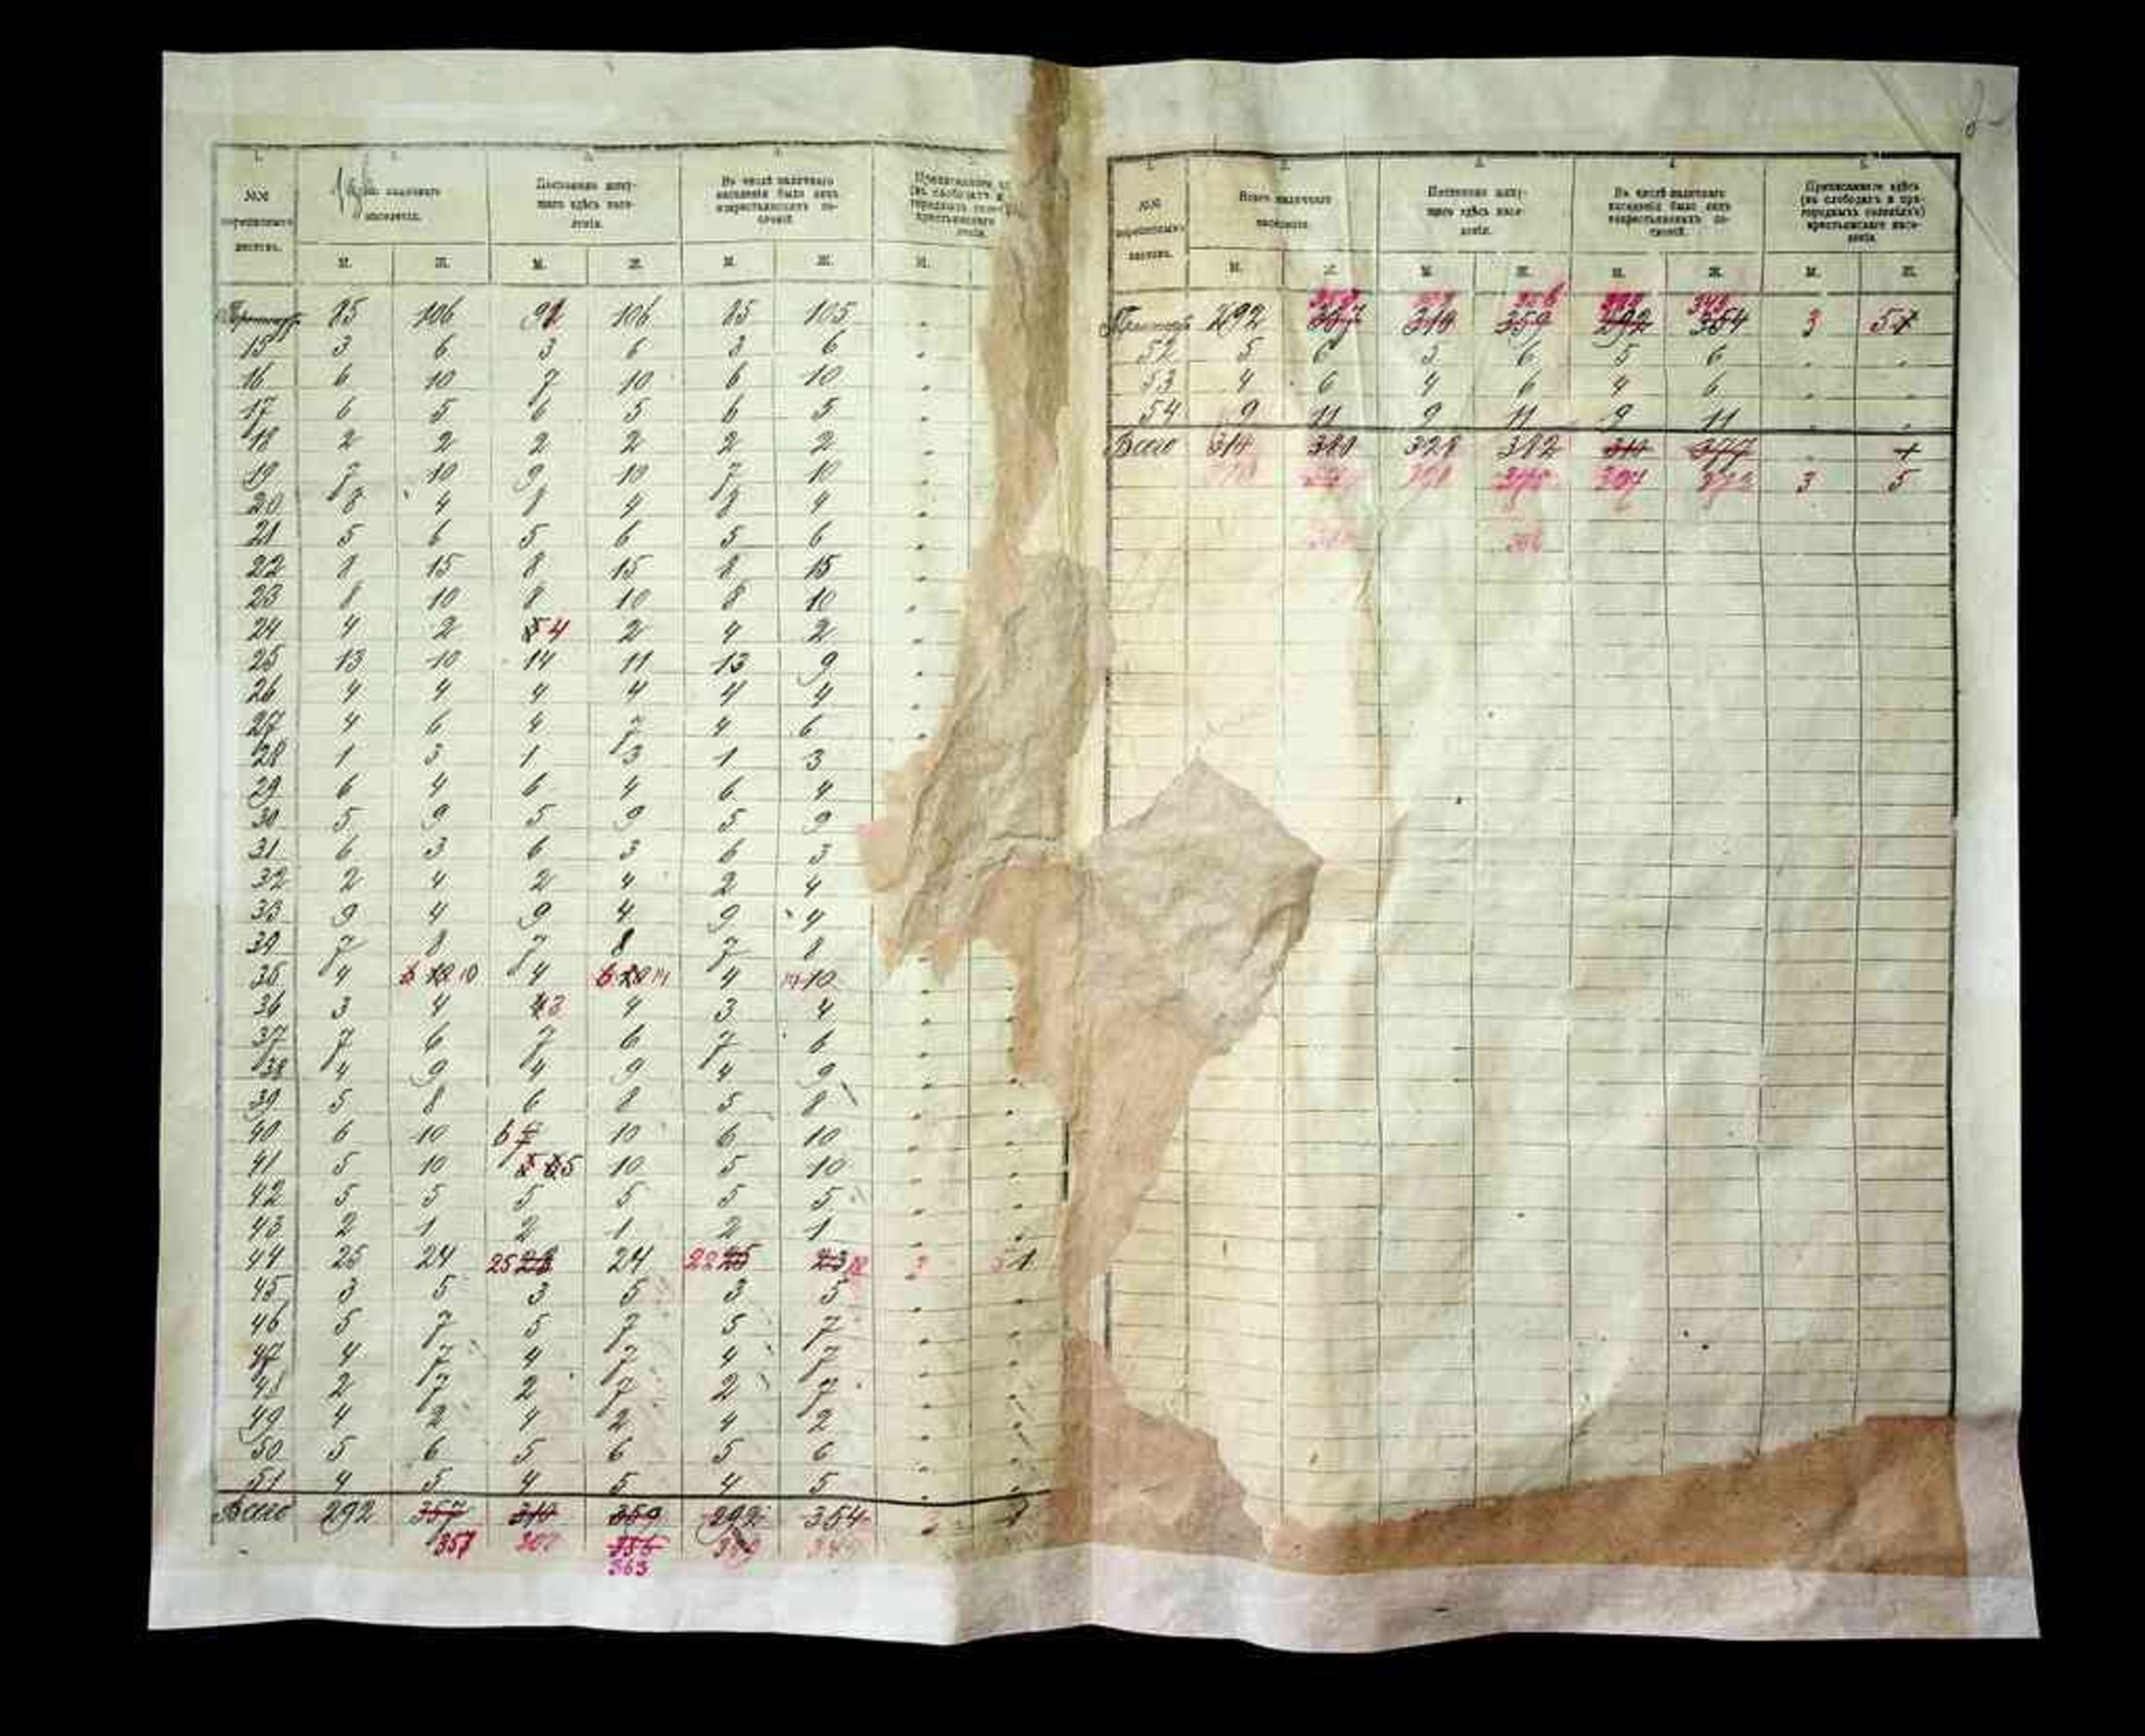 2
1. 2. 3. 4.
№№ переписныхъ листовъ. наличнаго населенія. Постоянно живущаго здѣсь населенія. Въ числѣ наличнаго населенія было лицъ некрестьянскихъ сословій
М. Ж. М. Ж. М. Ж. М.
85 106 91 106 85 105
15 3 6 3 6 3 6
16 6 10 7 10 6 10
17 6 5 6 5 6 5
18 2 2 2 2 2 2
19 7 10 9 10 7 10
20 8 4 8 4 8 4
21 5 6 5 6 5 6
22 8 15 8 15 8 15
23 8 10 8 10 8 10
24 4 2 5 4 2 4 2
25 13 10 14 11 13 9
26 4 4 4 4 4 4
27 4 6 4 7 4 6
28 1 3 1 3 1 3
29 6 4 6 4 6 4
30 5 9 5 9 5 9
31 6 3 6 3 6 3
32 2 4 2 4 2 4
33 9 4 9 4 9 4
34 7 8 7 8 7 8
35 4 6 10 4 6 4 10
36 3 4 4 3 4 3 4
37 7 6 7 6 7 6
38 4 9 4 9 4 9
39 5 8 6 8 5 8
40 6 10 6 7 10 6 10
41 5 10 5 10 5 10
42 5 5 5 5 5 5
43 2 1 2 1 2 1
44 25 24 25 28 24 22 25 23 3 5 1
45 3 5 3 5 3 5
46 5 7 5 7 5 7
47 4 7 4 7 4 7
48 2 7 2 7 2 7
49 4 2 4 2 4 2
50 5 6 5 6 5 6
51 4 5 4 5 4 5
Всего 292 357 310 359 292 354 1
357 307 356
363
1. 2. 3. 4. 5.
№№ переписныхъ листовъ. Всего наличнаго населенія. Постоянно живущаго здѣсь населенія. Въ числѣ наличнаго населенія было лицъ некрестьянскихъ сословій Приписаннаго здѣсь (въ слободахъ и пригородныхъ селеніяхъ) крестьянскаго населенія
М. Ж. М. Ж. М. Ж. М. Ж.
356 349
292 357 310 359 292 354 3 5 1
52 5 6 5 6 5 6
53 4 6 4 6 4 6
54 9 11 9 11 9 11
Всего 310 380 328 382 310 377 1
307 372 3 5